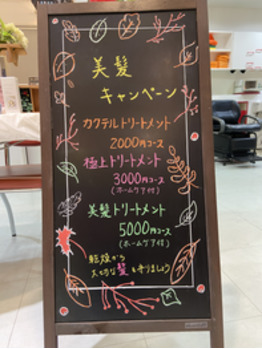 美髪
キャンペーン
カクテルトリートメント
2000円コース
極上トリートメント
3000円コース
(ホームケア付)
美髪トリートメント
5000円コース
(ホームケア付)
乾燥から
大切な髪を守りましょう